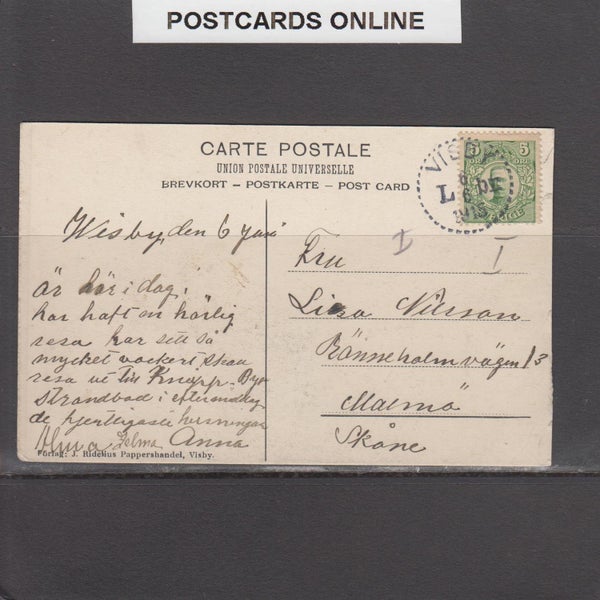 POSTCARDS ONLINE
CARTE POSTALE
UNION POSTALE UNIVERSELLE
BREVKORT – POSTKARTE – POST CARD
5 5
ÖRE
VISBY
L
Wisby, den 6 Juni
är här i dag,
har haft en härlig
resa har sett så
mycket vackert skall
resa ut till Knapp-Bys
Strandbad i eftermiddag
de hjertligaste helsningar
Alma Selma Anna
Förlag: J. Ridelius Pappershandel, Visby.
I I
Fru
Lisa Nilsson
Rönneholmsvägen 13
Malmö
Skåne